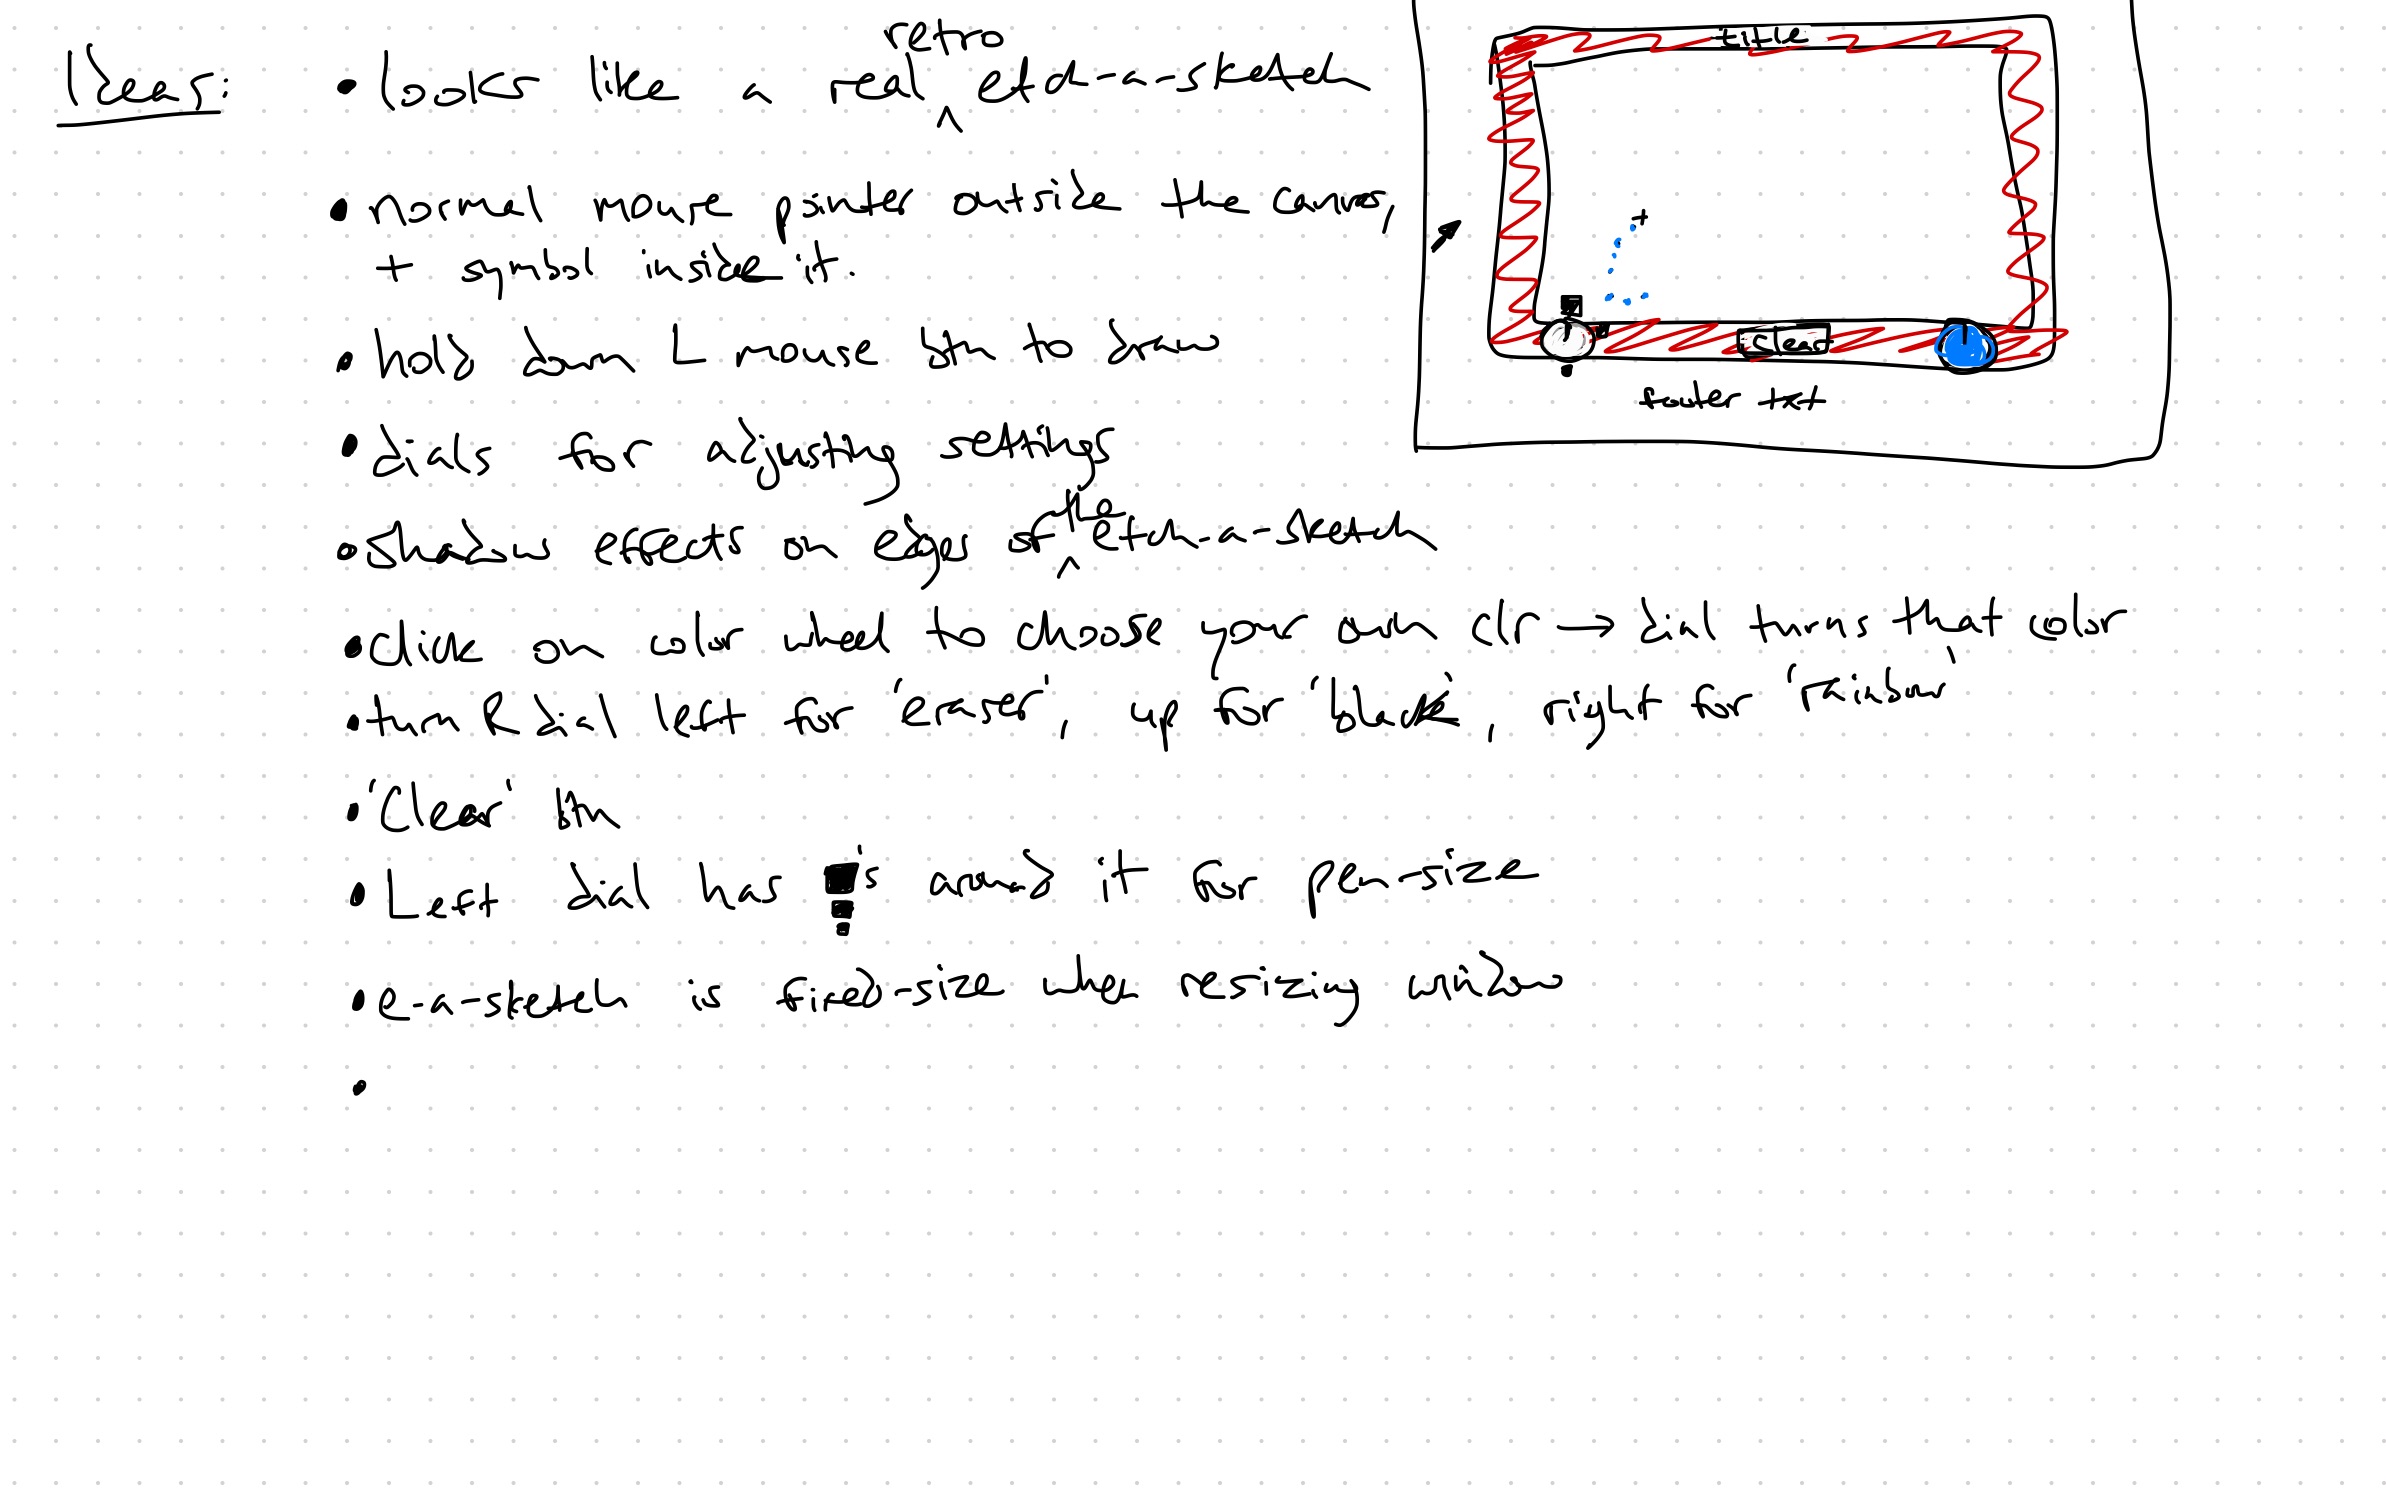 Ideas:
• looks like a real retro etch-a-sketch
• normal mouse pointer outside the canvas,
+ symbol inside it.
• hold down L mouse btn to draw
• dials for adjusting settings
• shadows effects on edges of the etch-a-sketch
• click on color wheel to choose your own clr → dial turns that color
• turn R dial left for 'eraser', up for 'black', right for 'rainbow'
• 'Clear' btn
• Left dial has 's around it for pen-size
• e-a-sketch is fixed-size when resizing window
•
title
+
clear
footer txt